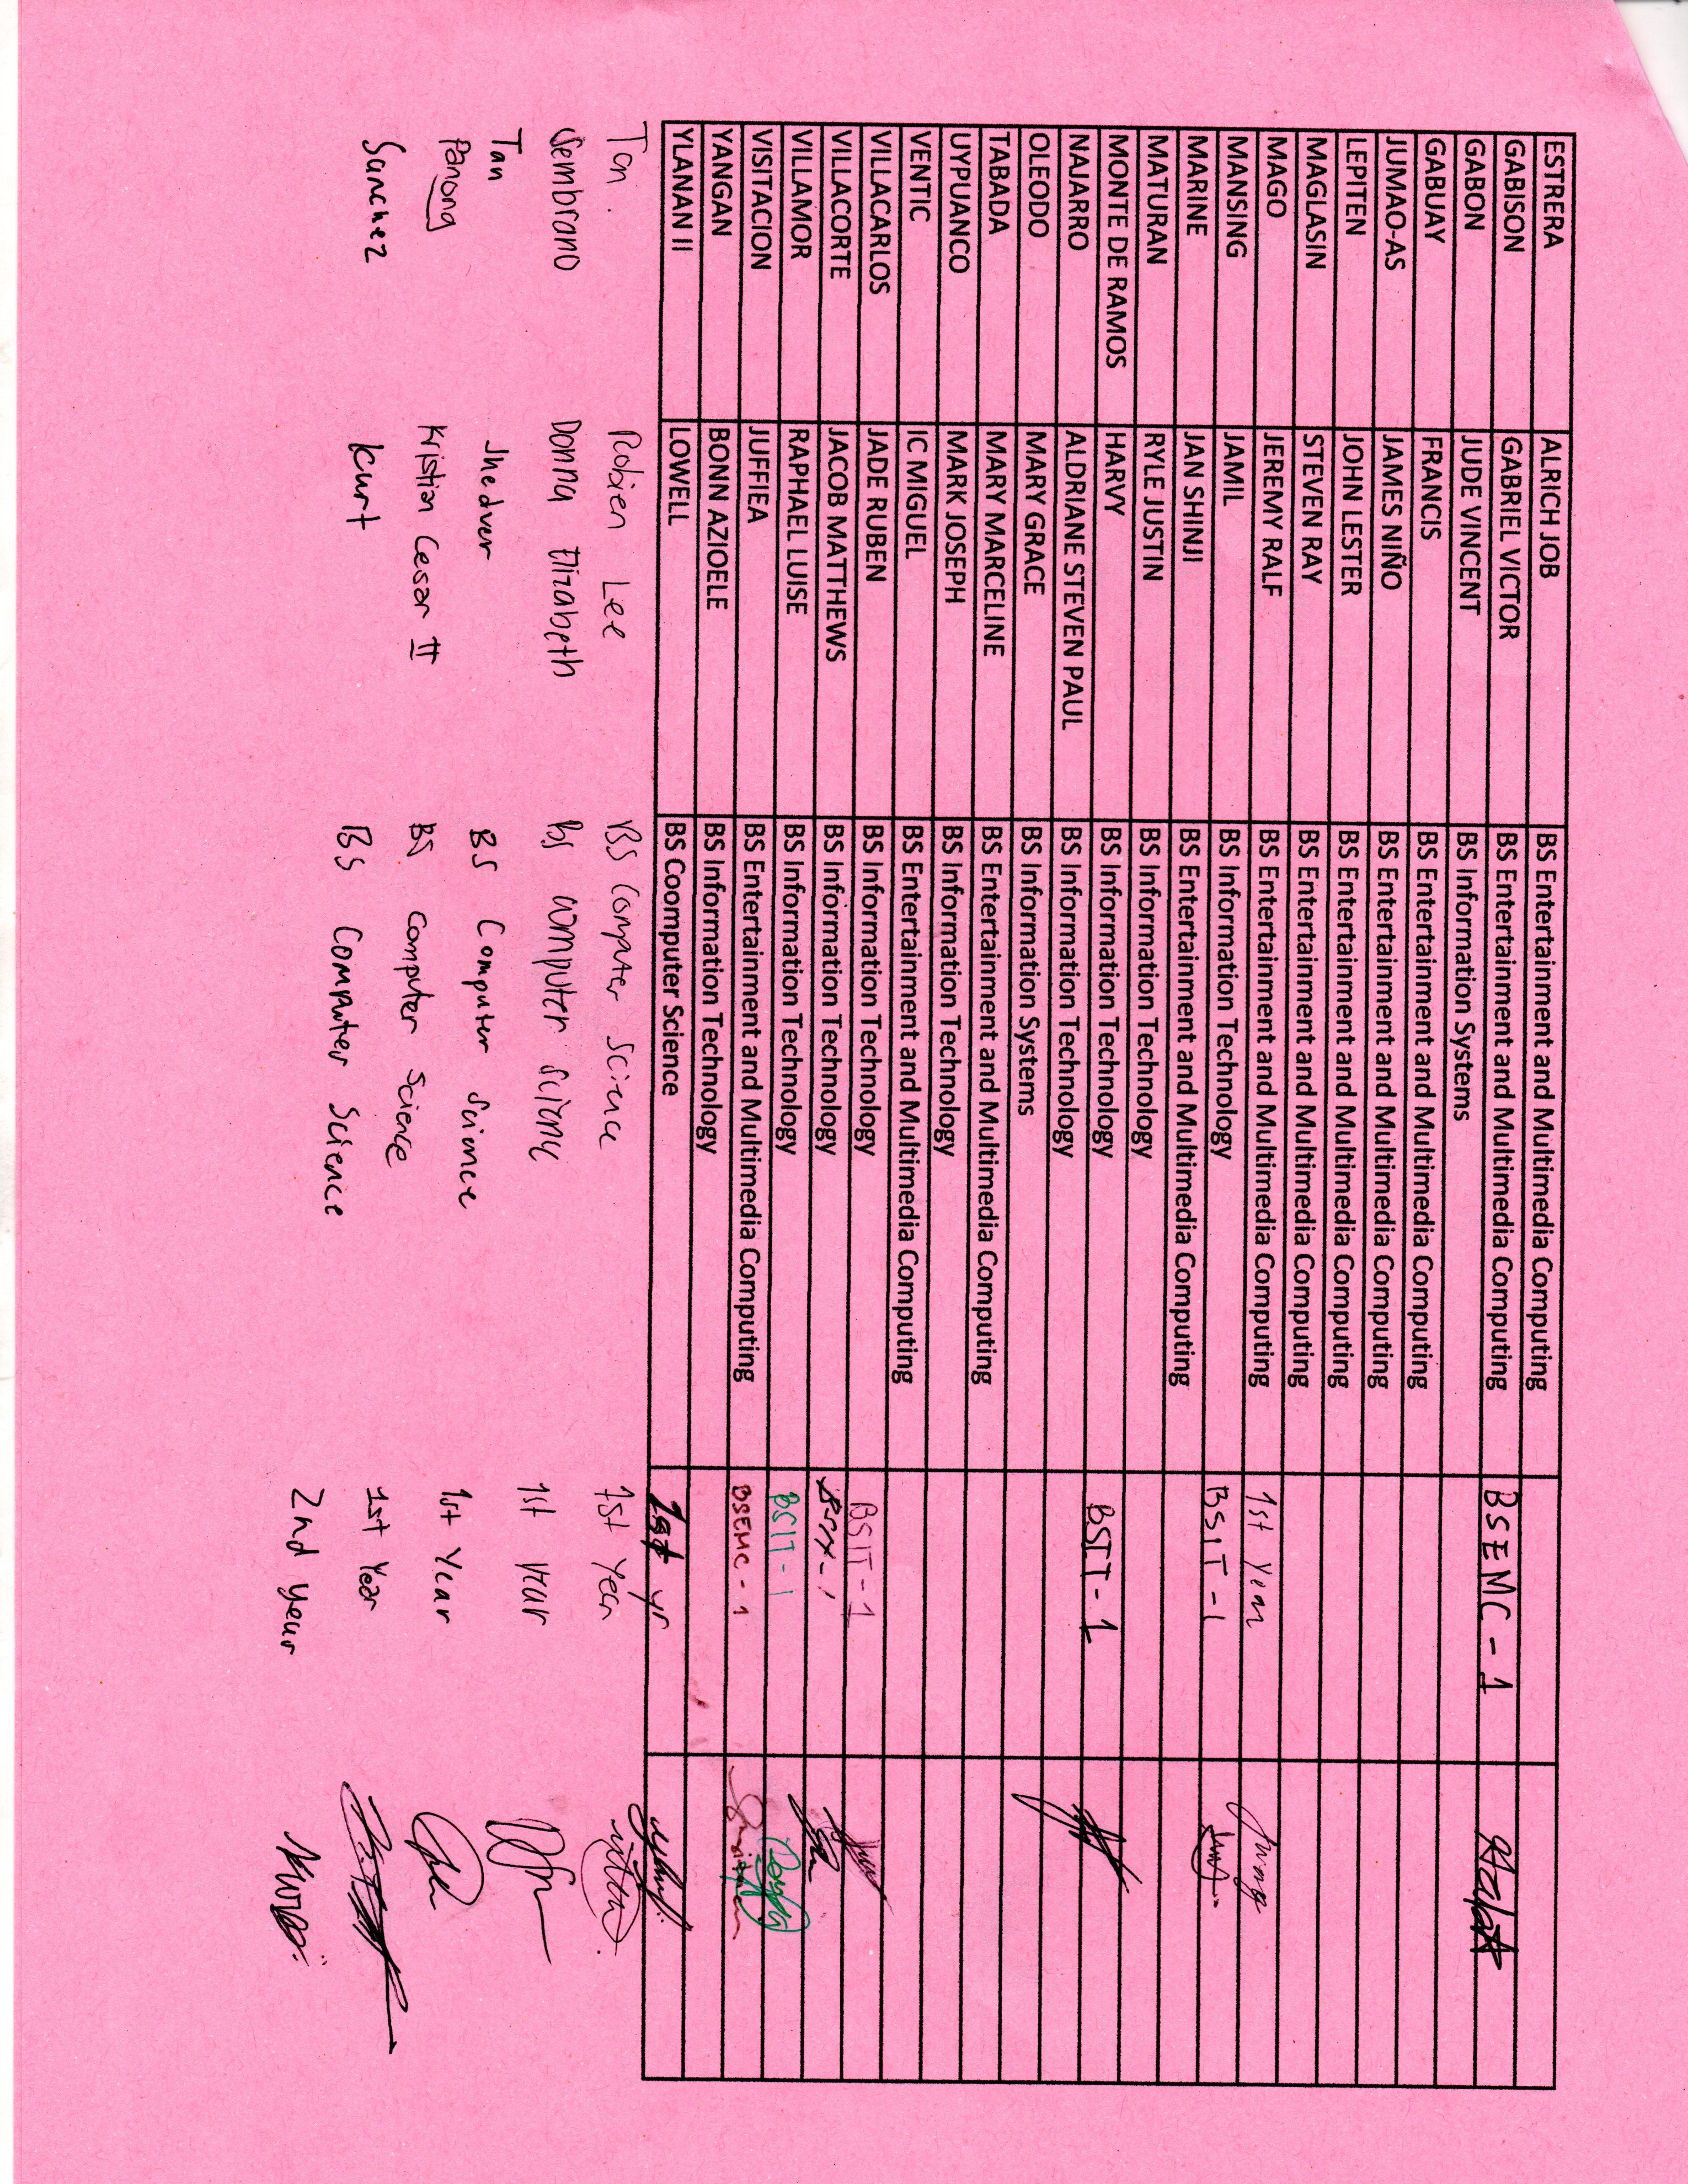 ESTRERA ALRICH JOB BS Entertainment and Multimedia Computing
GABISON GABRIEL VICTOR BS Entertainment and Multimedia Computing BSEMC - 1
GABON JUDE VINCENT BS Information Systems
GABUAY FRANCIS BS Entertainment and Multimedia Computing
JUMAO-AS JAMES NIÑO BS Entertainment and Multimedia Computing
LEPITEN JOHN LESTER BS Entertainment and Multimedia Computing
MAGLASIN STEVEN RAY BS Entertainment and Multimedia Computing
MAGO JEREMY RALF BS Entertainment and Multimedia Computing 1st Year
MANSING JAMIL BS Information Technology BSIT - 1
MARINE JAN SHINJI BS Entertainment and Multimedia Computing
MATURAN RYLE JUSTIN BS Information Technology
MONTE DE RAMOS HARVY BS Information Technology BSIT - 1
NAJARRO ALDRIANE STEVEN PAUL BS Information Technology
OLEODO MARY GRACE BS Information Systems
TABADA MARY MARCELINE BS Entertainment and Multimedia Computing
UYPUANCO MARK JOSEPH BS Information Technology
VENTIC IC MIGUEL BS Entertainment and Multimedia Computing
VILLACARLOS JADE RUBEN BS Information Technology BSIT - 1
VILLACORTE JACOB MATTHEWS BS Information Technology
VILLAMOR RAPHAEL LUISE BS Information Technology BSIT - 1
VISITACION JUFFIEA BS Entertainment and Multimedia Computing BSEMC - 1
YANGAN BONN AZIOELE BS Information Technology
YLANAN II LOWELL BS Coomputer Science 1st yr
Tan. Robien Lee BS Computer Science 1st Year
Sembrano Donna Elizabeth BS Computer Science 1st Year
Tan Jhedver BS Computer Science 1st Year
Panong Kristian Cesar II BS Computer Science 1st Year
Sanchez Kurt BS Computer Science 2nd year